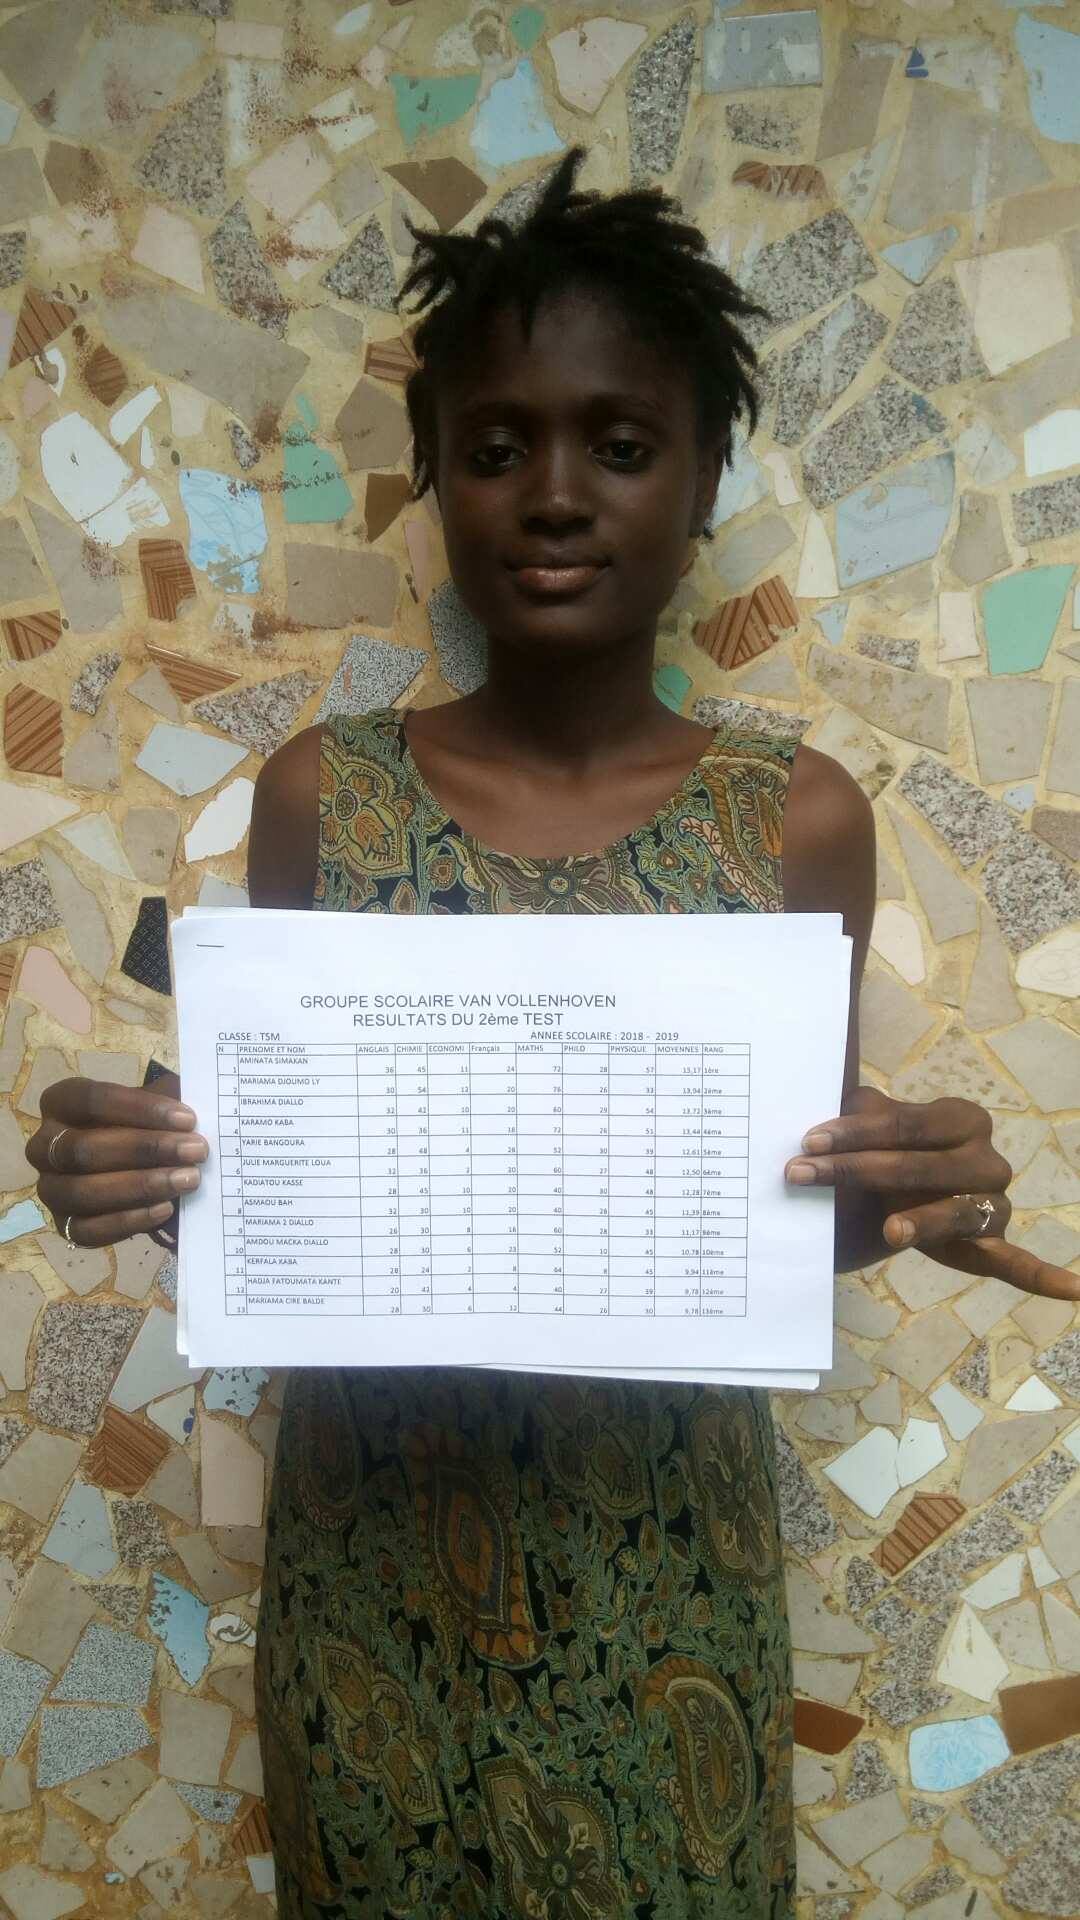 GROUPE SCOLAIRE VAN VOLLENHOVEN
RESULTATS DU 2ème TEST
CLASSE : TSM ANNEE SCOLAIRE : 2018 - 2019
N PRENOME ET NOM ANGLAIS CHIMIE ECONOMI Français MATHS PHILO PHYSIQUE MOYENNES RANG
1 AMINATA SIMAKAN 36 45 11 24 72 28 57 15,17 1ère
2 MARIAMA DJOUMO LY 30 54 12 20 76 26 33 13,94 2ème
3 IBRAHIMA DIALLO 32 42 10 20 60 29 54 13,72 3ème
4 KARAMO KABA 30 36 11 16 72 26 51 13,44 4ème
5 YARIE BANGOURA 28 48 4 26 52 30 39 12,61 5ème
6 JULIE MARGUERITE LOUA 32 36 2 20 60 27 48 12,50 6ème
7 KADIATOU KASSE 28 45 10 20 40 30 48 12,28 7ème
8 ASMAOU BAH 32 30 10 20 40 28 45 11,39 8ème
9 MARIAMA 2 DIALLO 26 30 8 16 60 28 33 11,17 9ème
10 AMDOU MACKA DIALLO 28 30 6 23 52 10 45 10,78 10ème
11 KERFALA KABA 28 24 2 8 64 8 45 9,94 11ème
12 HADJA FATOUMATA KANTE 20 42 4 4 40 27 39 9,78 12ème
13 MARIAMA CIRE BALDE 28 30 6 12 44 26 30 9,78 13ème